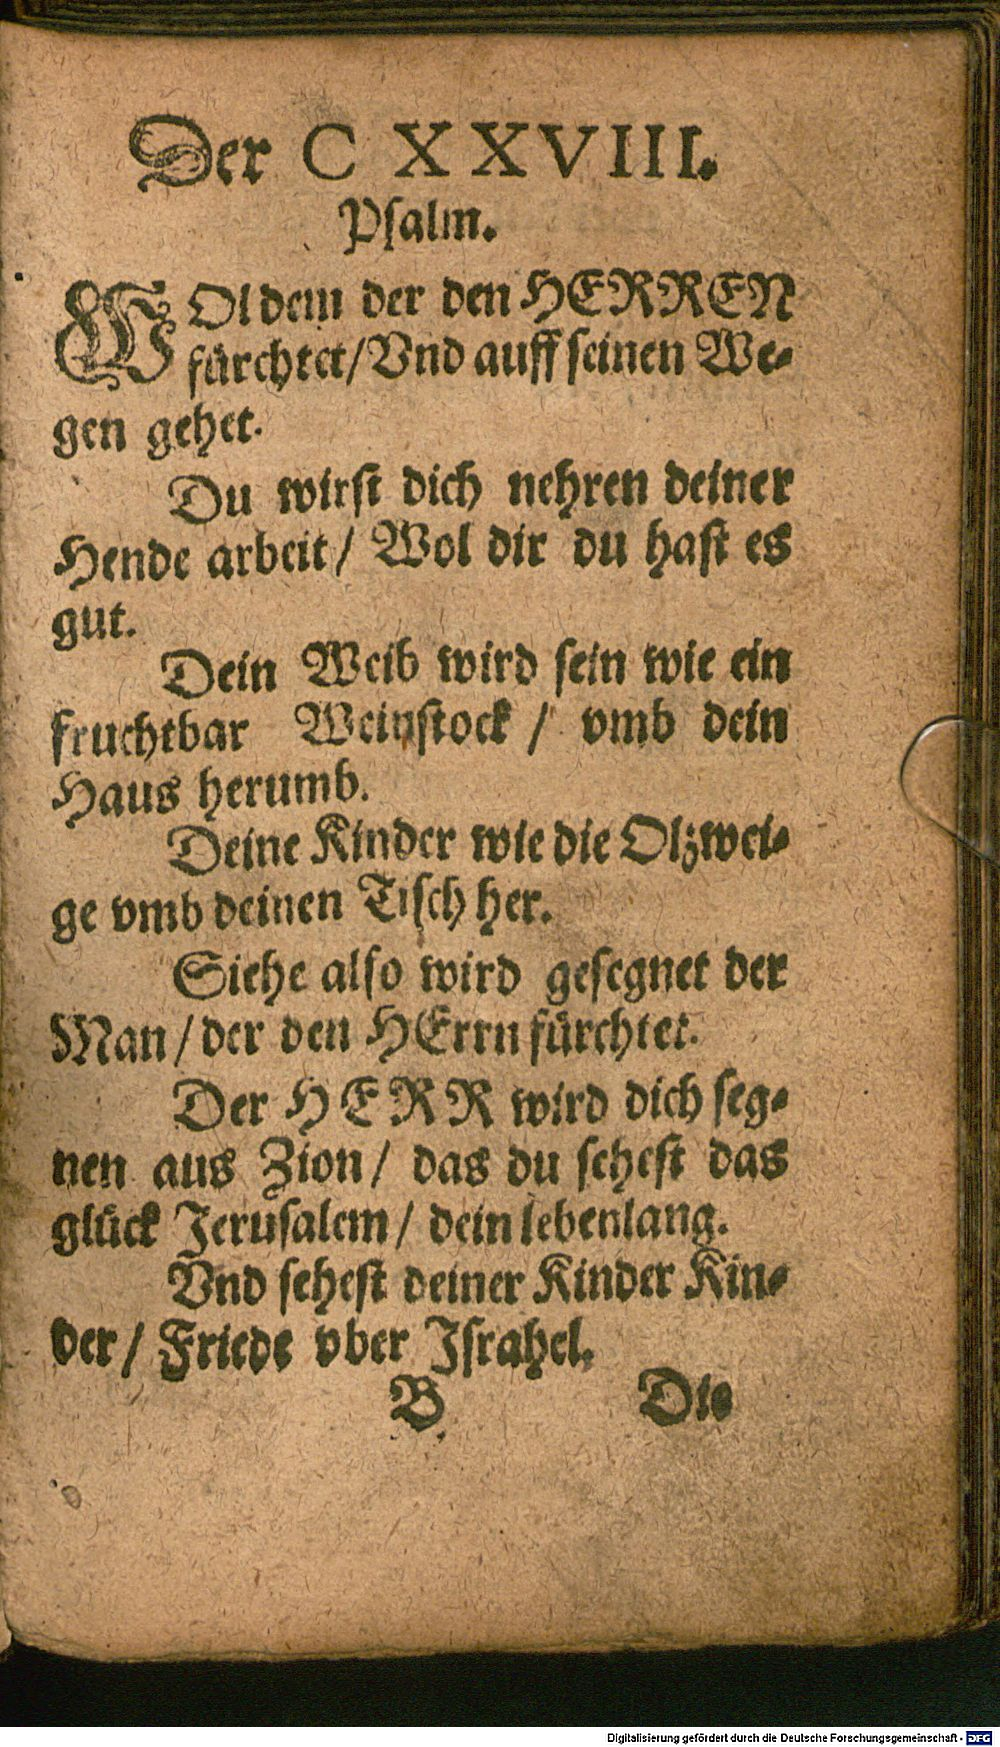 Der C XXVIII.
Psalm.
WOl dem der den HERREN
fürchtet/ Vnd auff seinen We-
gen gehet.
Du wirst dich nehren deiner
Hende arbeit/ Wol dir du hast es
gut.
Dein Weib wird sein wie ein
fruchtbar Weinstock / vmb dein
Haus herumb.
Deine Kinder wie die Olzwei-
ge vmb deinen Tisch her.
Siehe also wird gesegnet der
Man / der den HErrn fürchtet.
Der HERR wird dich seg-
nen aus Zion / das du sehest das
glück Jerusalem / dein lebenlang.
Vnd sehest deiner Kinder Kin-
der / Friede vber Israhel.
B Die
Digitalisierung gefördert durch die Deutsche Forschungsgemeinschaft - DFG